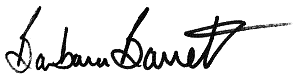 Barbara Barrett